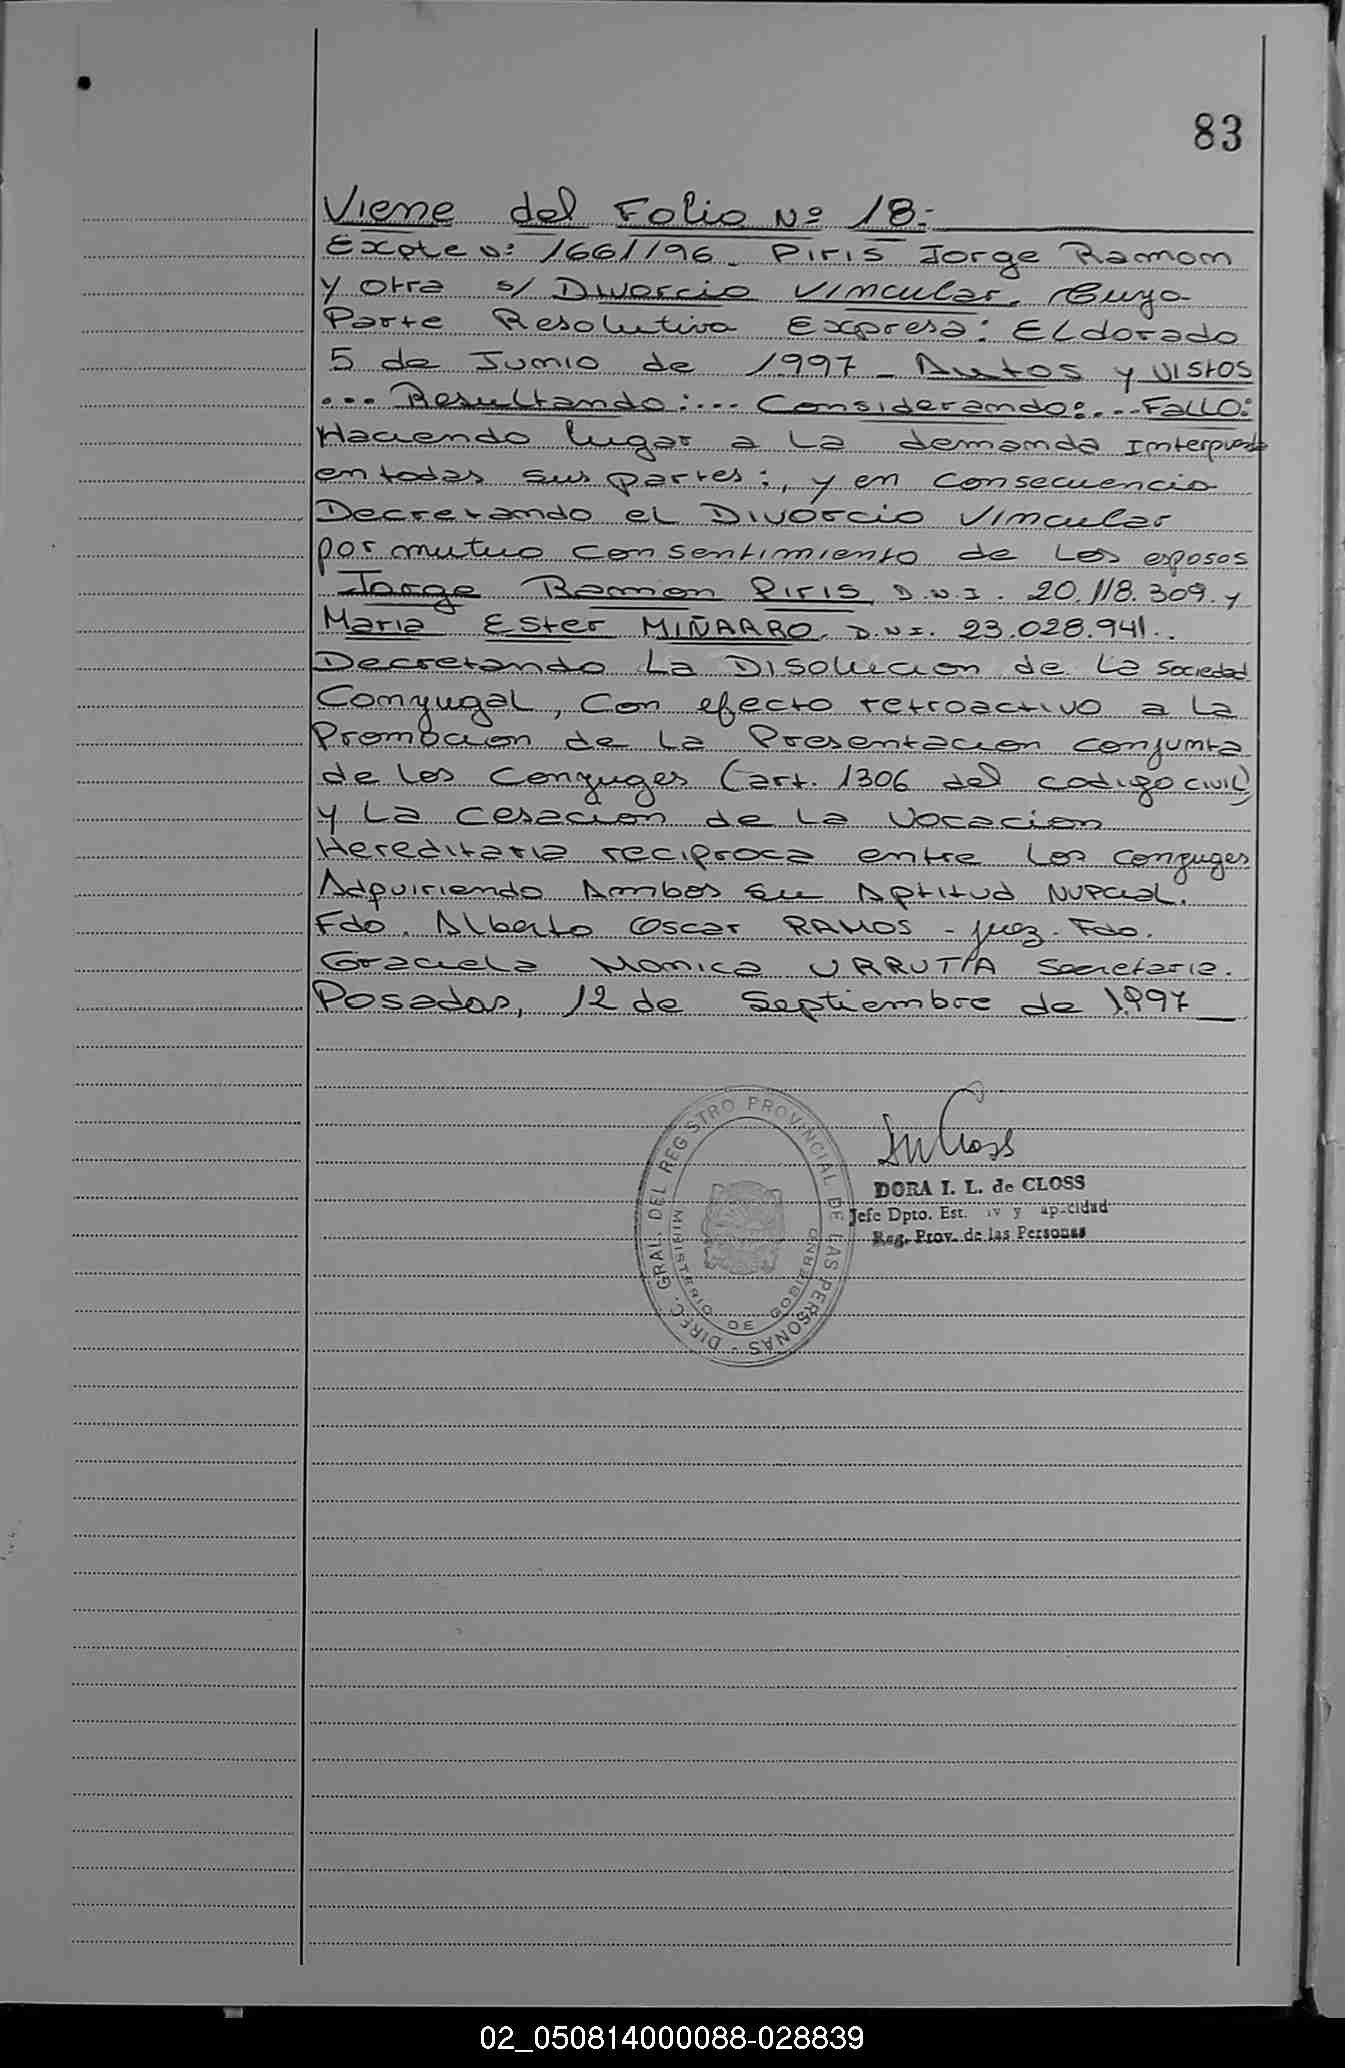 83
Viene del Folio Nº 18:-
Expte Nº: 1661/96. Piris Jorge Ramon
y otra s/ Divorcio Vincular. Cuya
Parte Resolutiva Expresa: Eldorado
5 de Junio de 1997 - Autos y Vistos
... Resultando:... Considerando:... Fallo:
Haciendo lugar a la demanda Interpuesta
en todas sus partes:, y en Consecuencia
Decretando el Divorcio Vincular
por mutuo consentimiento de los esposos
Jorge Ramon Piris D.N.I. 20.118.309. y
Maria Ester MIÑARRO. D.N.I. 23.028.941..
Decretando La Disolucion de La Sociedad
Conyugal, Con efecto retroactivo a La
Promocion de La Presentacion conjunta
de los Conyuges (art. 1306 del codigo civil)
y La cesacion de La Vocacion
Hereditaria reciproca entre los conyuges
Adquiriendo Ambos su Aptitud Nupcial.
Fdo. Alberto Oscar RAMOS - Juez. Fdo.
Graciela Monica URRUTIA Secretaria.
Posadas, 12 de Septiembre de 1997
DIREC. GRAL. DEL REGISTRO PROVINCIAL DE LAS PERSONAS -
MINISTERIO DE GOBIERNO
DORA I. L. de CLOSS
Jefe Dpto. Est.
Reg. Prov. de las Personas
02_050814000088-028839